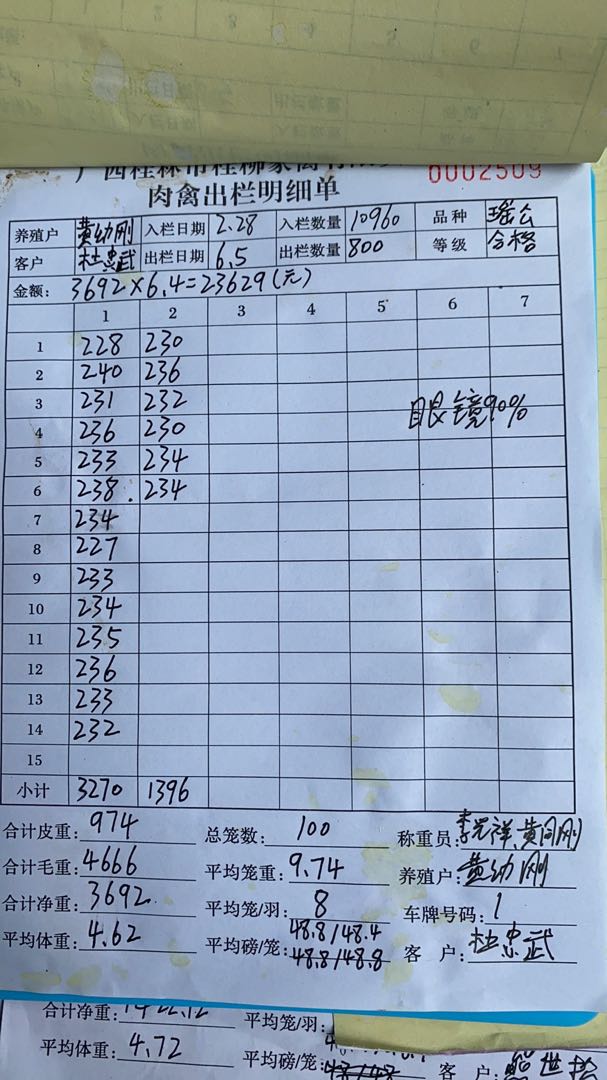 0002509
肉禽出栏明细单
养殖户 黄幼刚 入栏日期 2.28 入栏数量 10960 品种 瑶公
客户 杜忠武 出栏日期 6.5 出栏数量 800 等级 合格
金额: 3692×6.4=23629(元)
1 2 3 4 5 6 7
1 228 230
2 240 236
3 231 232
眼镜90%
4 236 230
5 233 234
6 238. 234
7 234
8 227
9 233
10 234
11 235
12 236
13 233
14 232
15
小计 3270 1396
合计皮重: 974 总笼数: 100 称重员: 黄同刚
合计毛重: 4666 平均笼重: 9.74 养殖户: 黄幼刚
合计净重: 3692 平均笼/羽: 8 车牌号码: 1
平均体重: 4.62 平均磅/笼: 48.8/48.4 48.8/48.8 客户: 杜忠武
合计净重: 平均笼/羽:
平均体重: 4.72 平均磅/笼: 客户: